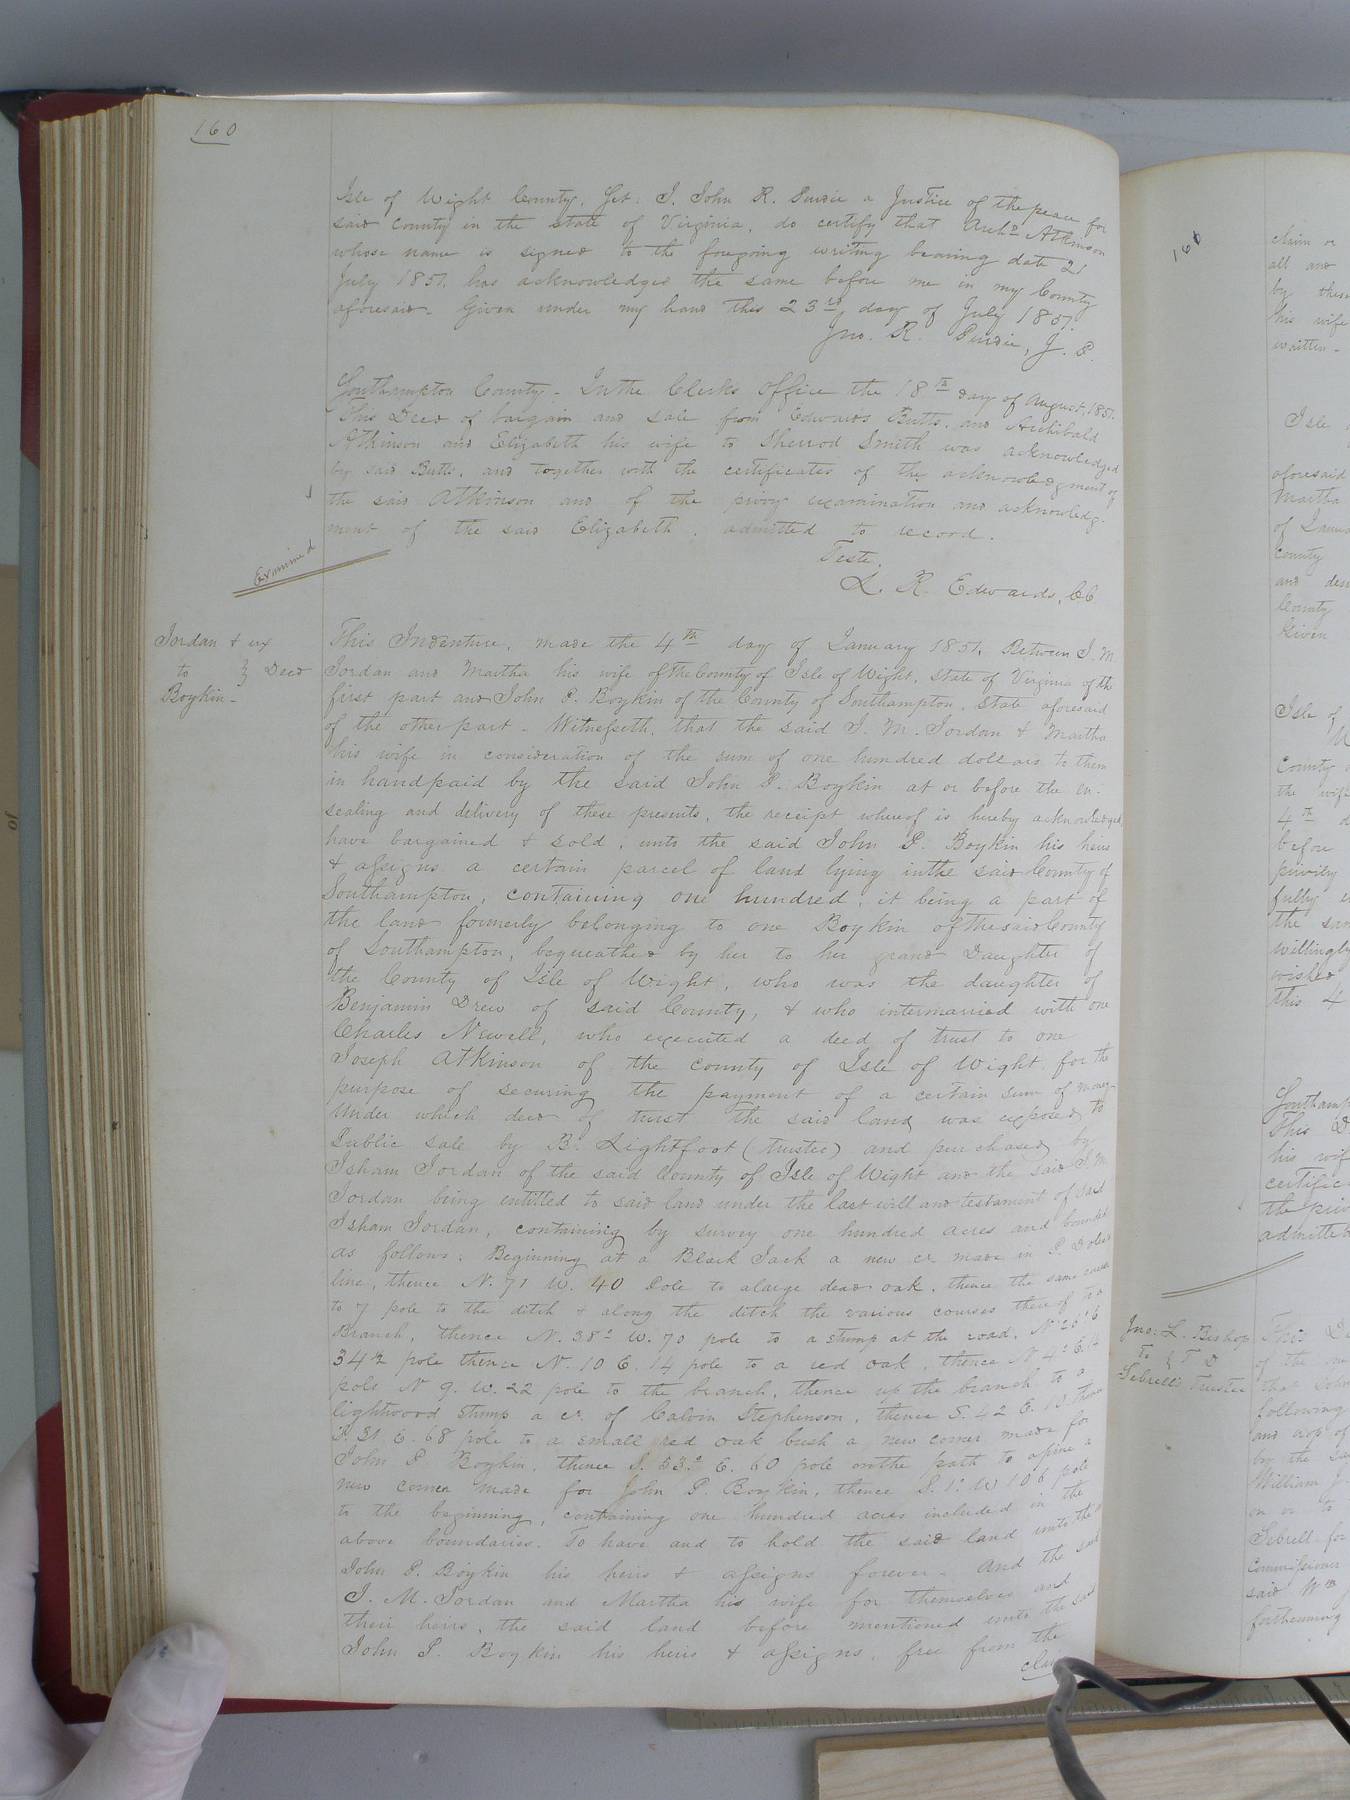 160
Isle of Wight County, Sct: I, John R. Purdie a Justice of the peace for
said County in the state of Virginia, do certify that Archd Atkinson
whose name is signed to the foregoing writing bearing date 21
July 1851, has acknowledged the same before me in my County
aforesaid. Given under my hand this 23rd day of July 1851.
Jno. R. Purdie, J. P.
Southampton County. In the Clerks Office the 18th day of August, 1851.
This Deed of bargain and sale from Edwards Butts, and Archibald
Atkinson and Elizabeth his wife to Sherrod Smith was acknowledged
by said Butts, and together with the certificates of the acknowledgment of
the said Atkinson and of the privy examination and acknowledg-
ment of the said Elizabeth, admitted to record.
Teste,
L. R. Edwards, CC
Examined
Jordan & ux
to } Deed
Boykin -
This Indenture, made the 4th day of January 1851, Between J. M.
Jordan and Martha his wife of the County of Isle of Wight, State of Virginia of the
first part and John P. Boykin of the County of Southampton, State aforesaid
of the other part - Witnesseth, that the said J. M. Jordan & Martha
his wife in consideration of the sum of one hundred dollars to them
in hand paid by the said John P. Boykin at or before the en-
sealing and delivery of these presents, the receipt whereof is hereby acknowledged
have bargained & sold, unto the said John P. Boykin his heirs
& assigns a certain parcel of land lying in the said County of
Southampton, containing one hundred, it being a part of
the land formerly belonging to one Boykin of the said County
of Southampton, bequeathed by her to her grand Daughter of
the County of Isle of Wight, who was the daughter of
Benjamin Drew of said County, & who intermarried with one
Charles Newell, who executed a deed of trust to one
Joseph Atkinson of the county of Isle of Wight for the
purpose of securing the payment of a certain sum of money
Under which deed of trust the said land was exposed to
Public sale by B. Lightfoot (trustee) and purchased by
Isham Jordan of the said County of Isle of Wight and the said J. M
Jordan being entitled to said land under the last will and testament of said
Isham Jordan, containing by survey one hundred acres and bounded
as follows: Beginning at a Black Jack a new cr. made in P. Doles
line, thence N. 71 W. 40 Pole to a large dead oak, thence the same course
to 7 pole to the ditch & along the ditch the various courses thereof to a
Branch, thence N. 38° W. 70 pole to a stump at the road, N
34 1/2 pole thence N. 10 E. 14 pole to a red oak, thence N 4° E. 14
pole N 9. W. 22 pole to the branch, thence up the branch to a
lightwood stump a cr. of Calvin Stephenson, thence S. 42 E. 10 thence
S. 31 E. 68 pole to a small red oak bush a new corner made for
John P. Boykin, thence S. 53° E. 60 pole on the path to a pine a
new corner made for John P. Boykin, thence S. 1° W 106 pole
to the beginning, containing one hundred acres included in the
above boundaries. To have and to hold the said land unto the
John P. Boykin his heirs & assigns forever. And the said
J. M. Jordan and Martha his wife for themselves and
their heirs, the said land before mentioned unto the said
John P. Boykin his heirs & assigns, free from the
claim
161
claim or
all and
by these
his wife
written -
Isle
aforesaid
Martha
of January
County
and
County
Given
Isle of
County
the wife
4th
before
privily
fully
the
willingly
wished
this 4
Southamp
This D
his wif
certific
the priv
admitted
Jno: L. Bishop
To } T D
Sebrell Trustee
This De
of the
that John
following
and
by the
William J.
on or to
Sebrell for
Commissioner
said Wm
forthcoming